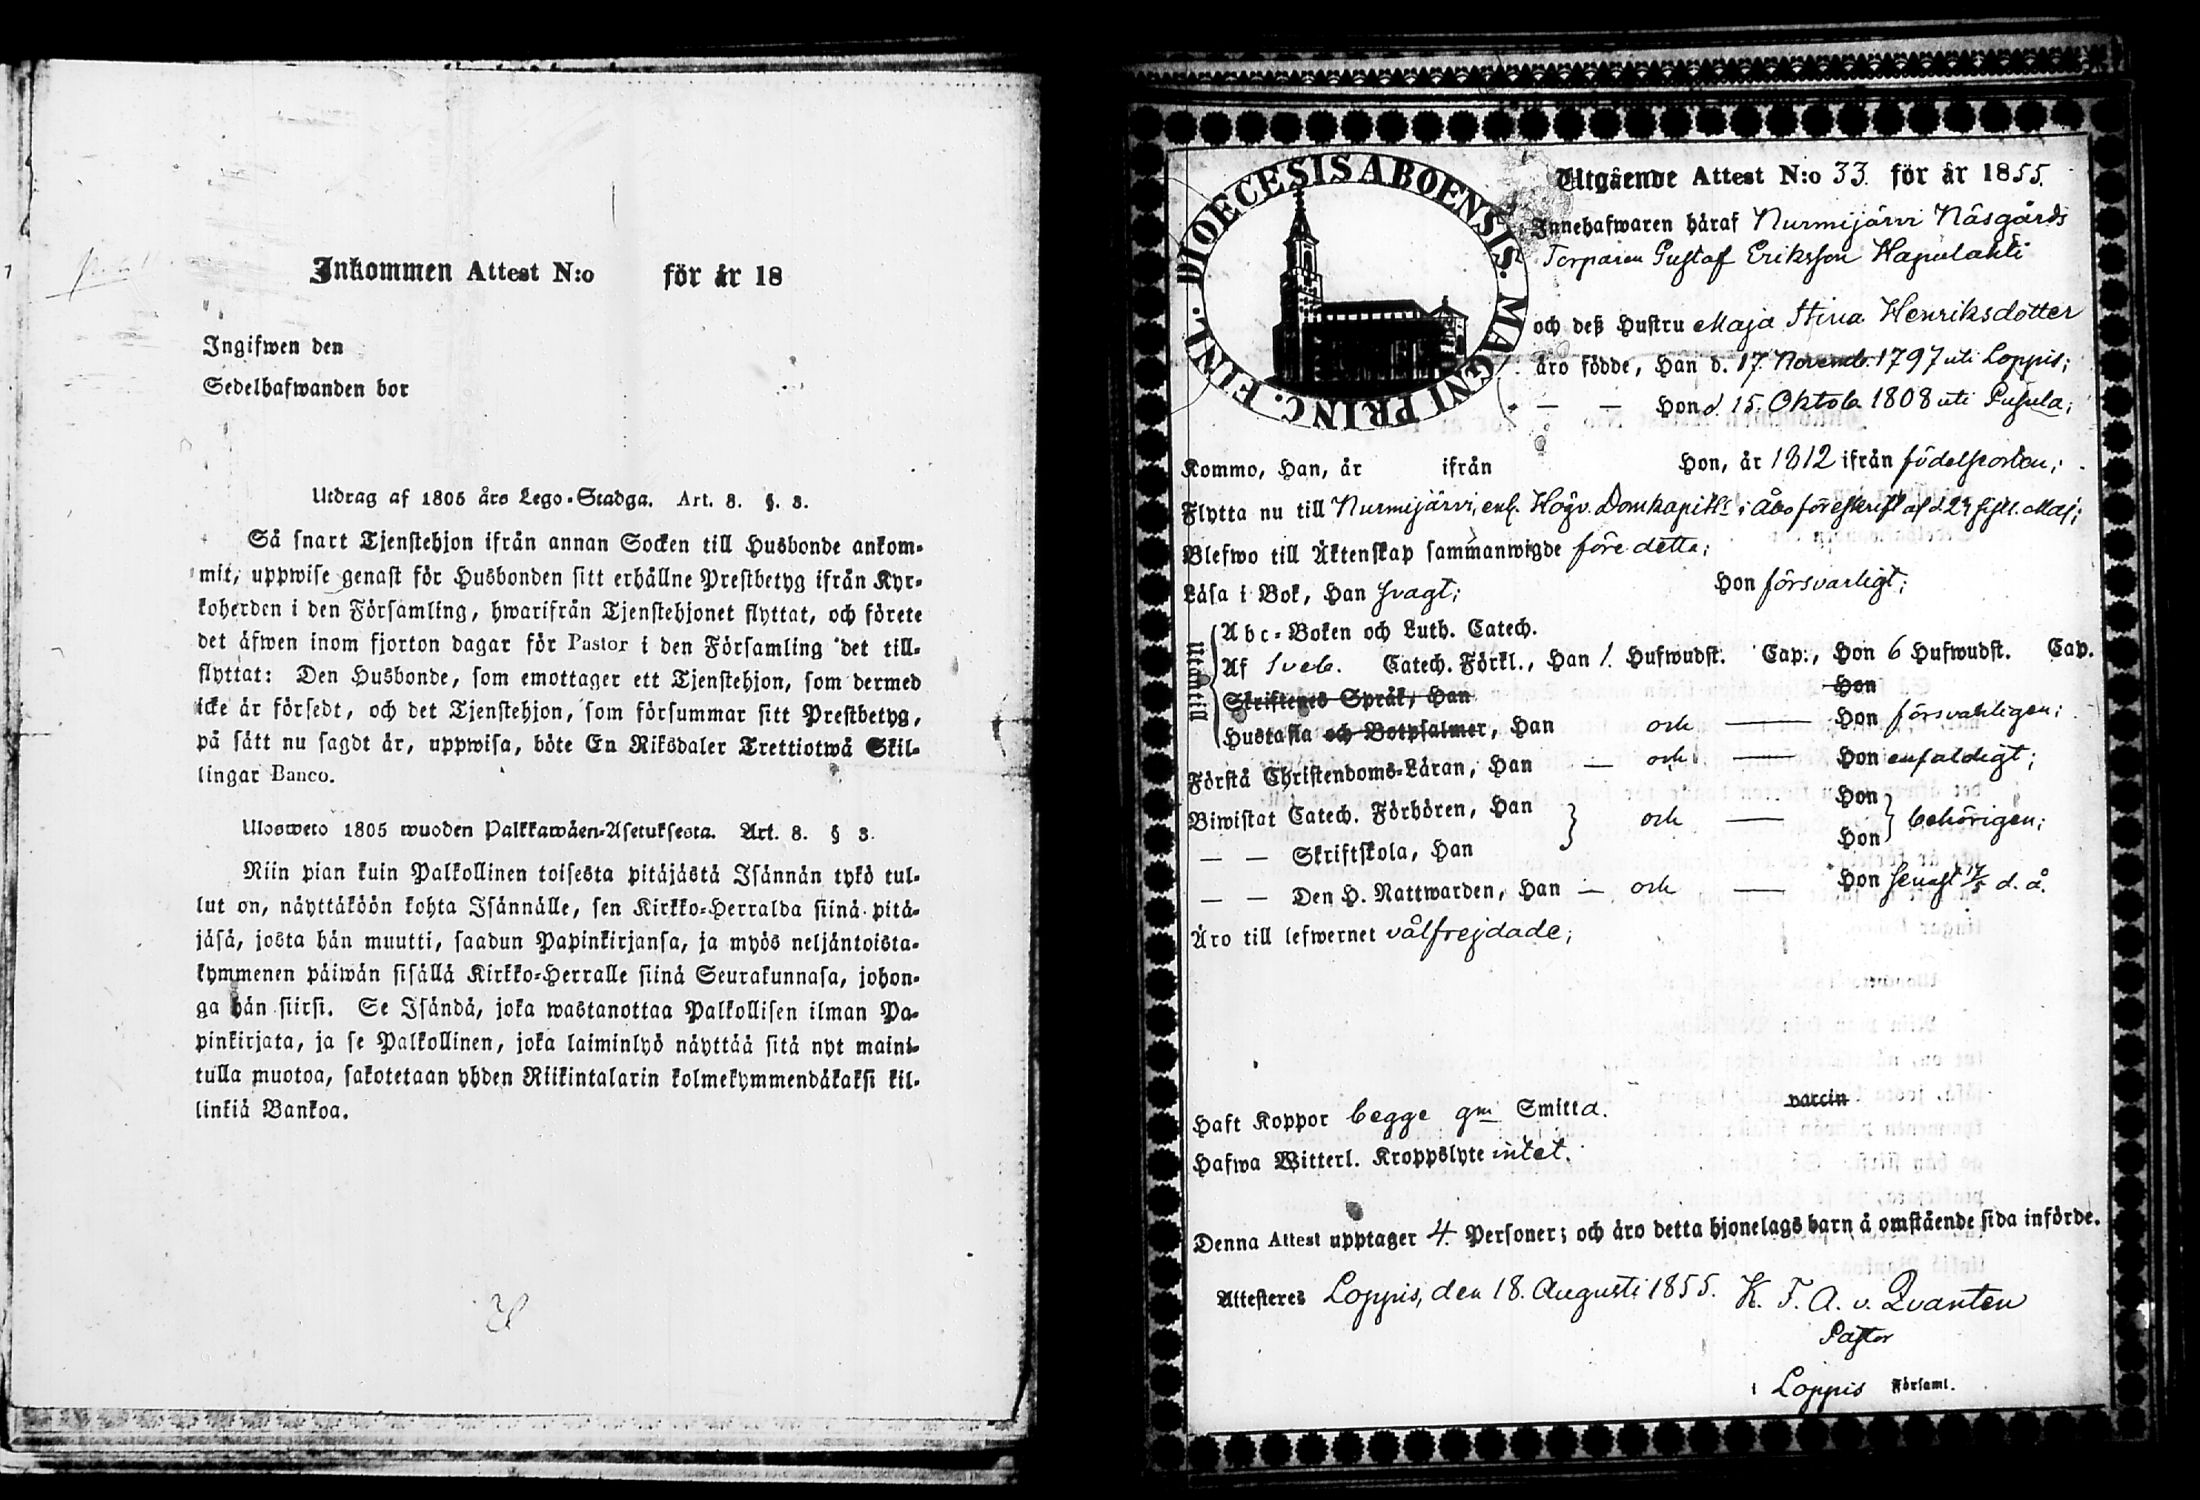 Inkommen Attest N:o för år 18
Ingifwen den
Sedelhafwanden bor
Utdrag af 1805 års Lego-Stadga. Art. 8. §. 3.
Så snart Tjenstehjon ifrån annan Socken till Husbonde ankom-
mit, uppwise genast för Husbonden sitt erhållne Prestbetyg ifrån Kyr-
koherden i den Församling, hwarifrån Tjenstehjonet flyttat, och förete
det äfwen inom fjorton dagar för Pastor i den Församling det till-
flyttat: Den Husbonde, som emottager ett Tjenstehjon, som dermed
icke är försedt, och det Tjenstehjon, som försummar sitt Prestbetyg,
på sätt nu sagdt är, uppwisa, böte En Riksdaler Trettiotwå Skil-
lingar Banco.
Ulosweto 1805 wuoden Palkkawäen-Asetuksesta. Art. 8. § 3.
Niin pian kuin Palkollinen toisesta pitäjästä Isännän tykö tul-
lut on, näyttäköön kohta Isännälle, sen Kirkko-Herralda siinä pitä-
jäsä, josta hän muutti, saadun Papinkirjansa, ja myös neljäntoista-
kymmenen päiwän sisällä Kirkko-Herralle siinä Seurakunnasa, johon-
ga hän siirsi. Se Isändä, joka wastanottaa Palkollisen ilman Pa-
pinkirjata, ja se Palkollinen, joka laiminlyö näyttää sitä nyt maini-
tulla muotoa, sakotetaan yhden Riikintalarin kolmekymmendäkaksi kil-
linkiä Bankoa.
DIOECESIS ABOENSIS. MAGNI PRINC. FINL.
Utgående Attest N:o 33. för år 1855.
Innehafwaren häraf Nurmijärvi Näsgårds
Torparen Gustaf Eriksson Hapulahti
och deß Hustru Maja Stina Henriksdotter
äro födde, Han d. 17. Novemb. 1797 uti Loppis;
— — Hon d. 15. Oktob. 1808 uti Pusula;
Kommo, Han, år ifrån Hon, år 1812 ifrån födelseorten;
Flytta nu till Nurmijärvi, enl. Högv. Domkapitls i Åbo föreskrift af d. 24 sistl. Maj;
Blefwo till Äktenskap sammanwigde före detta;
Läsa i Bok, Han svagt; Hon försvarligt;
Utantill
Abc-Boken och Luth. Catech.
Af Sveb. Catech. Förkl., Han 1. Hufwudst. Cap., Hon 6 Hufwudst. Cap.
Skriftenes Språk, Han Hon
Hustafla och Botpsalmer, Han och — Hon försvarligen;
Förstå Christendoms-Läran, Han — och — Hon enfaldigt;
Biwistat Catech. Förhören, Han och — Hon behörigen;
— — Skriftskola, Han Hon
— — Den H. Nattwarden, Han — och — Hon senast 17/5 d. å.
Äro till lefwernet välfrejdade;
Haft Koppor begge gm Smitta. vaccin
Hafwa Witterl. Kroppslyte intet.
Denna Attest upptager 4. Personer; och äro detta hjonelags barn å omstående sida införde.
Attesteres Loppis, den 18. Augusti 1855. K. F. A. v. Qvanten
Pastor
i Loppis Församl.